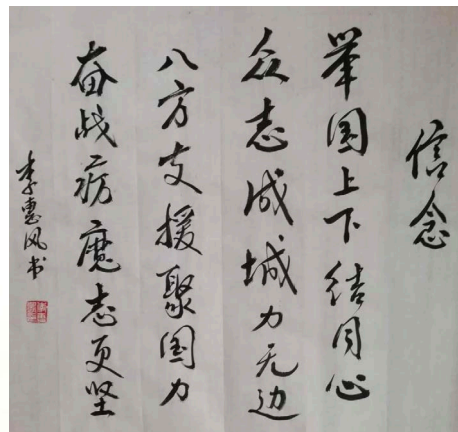 信念
举国上下结同心
众志成城力无边
八方支援聚国力
奋战疠魔志更坚
李惠风书